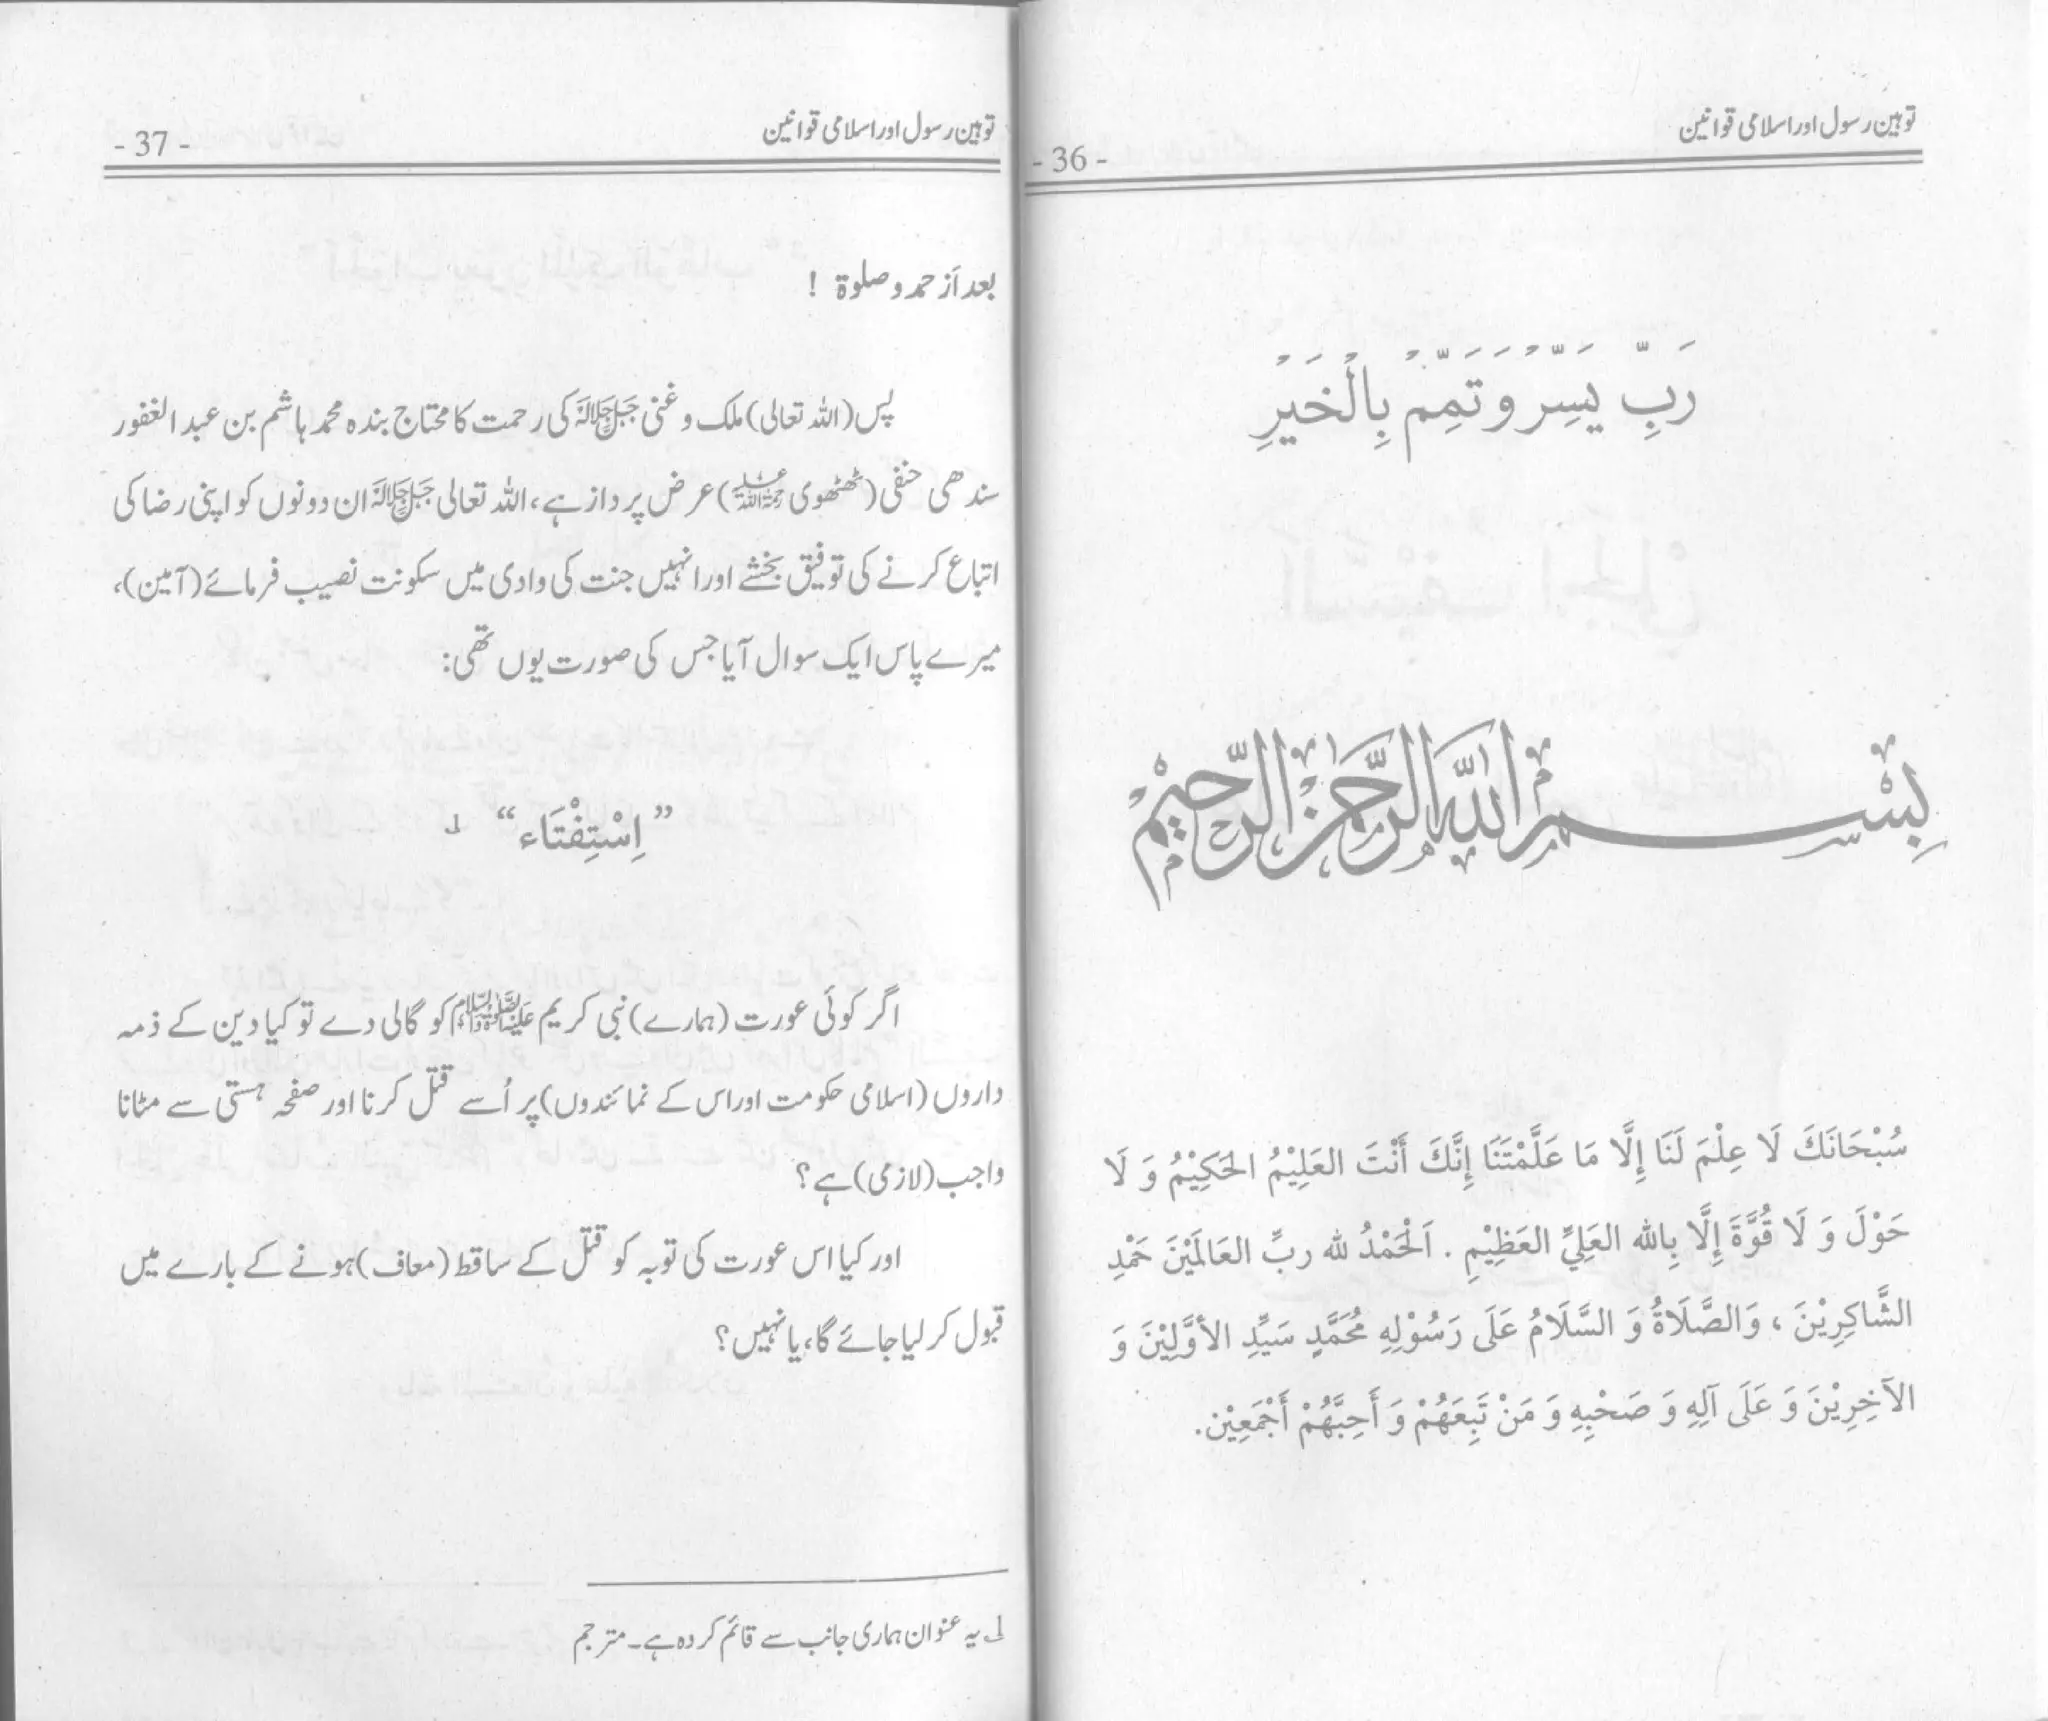 توہین رسول اور اسلامی قوانین
- 36 -
رَبِّ يَسِّرْ وَ تَمِّمْ بِالْخَيْرِ
بِسْمِ اللهِ الرَّحْمٰنِ الرَّحِيْمِ
سُبْحَانَكَ لَا عِلْمَ لَنَا إِلَّا مَا عَلَّمْتَنَا إِنَّكَ أَنْتَ العَلِيْمُ الحَكِيْمُ وَ لَا
حَوْلَ وَ لَا قُوَّةَ إِلَّا بِالله العَلِيِّ العَظِيْمِ . اَلْحَمْدُ لله ربِّ العَالَمَيْنَ حَمْدِ
الشَّاكِرِيْنَ ، وَالصَّلَاةُ وَ السَّلَامُ عَلَى رَسُوْلِهِ مُحَمَّدٍ سَيِّدِ الأوَّلِيْنَ وَ
الآخِرِيْنَ وَ عَلَى آلِهِ وَ صَحْبِهِ وَ مَنْ تَبِعَهُمْ وَ أَحِبَّهُمْ أَجْمَعِيْن.
توہین رسول اور اسلامی قوانین
- 37 -
بعد اَز حمد و صلوۃ !
پس (اللہ تعالی) ملک و غنی جَلَّ جَلَالُہٗ کی رحمت کا محتاج بندہ محمد ہاشم بن عبد الغفور
سندھی حنفی (ٹھٹھوی رحمۃ اللہ علیہ) عرض پرداز ہے، اللہ تعالی جَلَّ جَلَالُہٗ ان دونوں کو اپنی رضا کی
اتباع کرنے کی توفیق بخشے اور انہیں جنت کی وادی میں سکونت نصیب فرمائے (آمین)،
میرے پاس ایک سوال آیا جس کی صورت یوں تھی:
”اِسْتِفْتَاء“ ۱؎
اگر کوئی عورت (ہمارے) نبی کریم عَلَیْہِ الصَّلٰوۃُ وَالسَّلَام کو گالی دے تو کیا دین کے ذمہ
داروں (اسلامی حکومت اور اس کے نمائندوں) پر اُسے قتل کرنا اور صفحہ ہستی سے مٹانا
واجب (لازمی) ہے؟
اور کیا اس عورت کی توبہ کو قتل کے ساقط (معاف) ہونے کے بارے میں
قبول کر لیا جائے گا، یا نہیں؟
۱؎ یہ عنوان ہماری جانب سے قائم کردہ ہے۔ مترجم